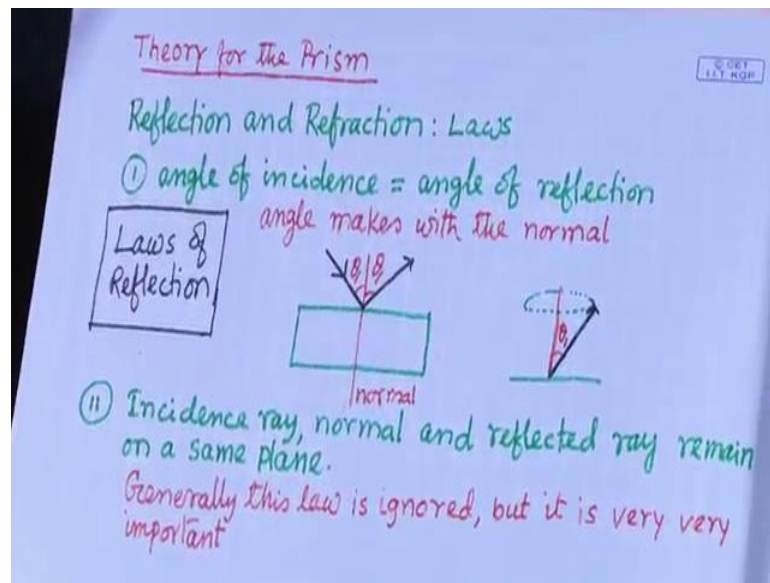 Theory for the Prism
© CET
I.I.T. KGP
Reflection and Refraction: Laws
I angle of incidence = angle of reflection
angle makes with the normal
Laws of
Reflection
θ₁ θ₁
θ₁
normal
II Incidence ray, normal and reflected ray remain
on a same plane.
Generally this law is ignored, but it is very very
important